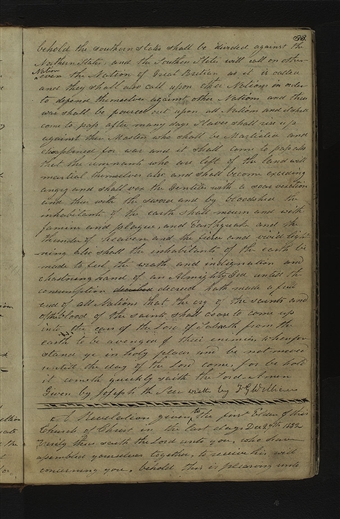 behold the Southern States shall be divided against the
Northern States, and the Southern States will call on other
Nation
even the Nation of Great Brittian as it is called
and they shall also call upon other Nations in order
to defend themselves against other Nations and thus
war shall be poured out upon all Nations and it shall
come to pass after many days Slaves shall rise up
against their Masters who shall be Martialed and
disaplined for war and it shall come to pass also
that the remnants who are left of the land will
martial themselves also and shall become exceeding
angry and shall vex the Gentiles with a soar vexation
and thus with the sword and by bloodshed the
inhabitants of the earth shall mourn and with
famine and plague, and Earthquake and the
thunder of heaven and the fierce and vivid light
ning also shall the inhabitants of the earth be
made to feel the wrath and indignation and
chastning hand of an Almighty God untill the
consumption decreed hath made a full
end of all Nations that the cry of the saints and
of the blood of the saints shall cease to come up
into the ears of the Lord of Sabaoth from the
earth to be avenged of their enemies wherefore
stand ye in holy places and be not moved
untill the day of the Lord come, for be hold
it cometh quickly saith the Lord Amen
Given by Joseph the Seer
A Revelation given to the first Elders of the
Church of Christ in the last days Dec 27th 1832
Verily thus saith the Lord unto you, who have
assembled yourselves together, to receive his will
concerning you, behold this is pleasing unto